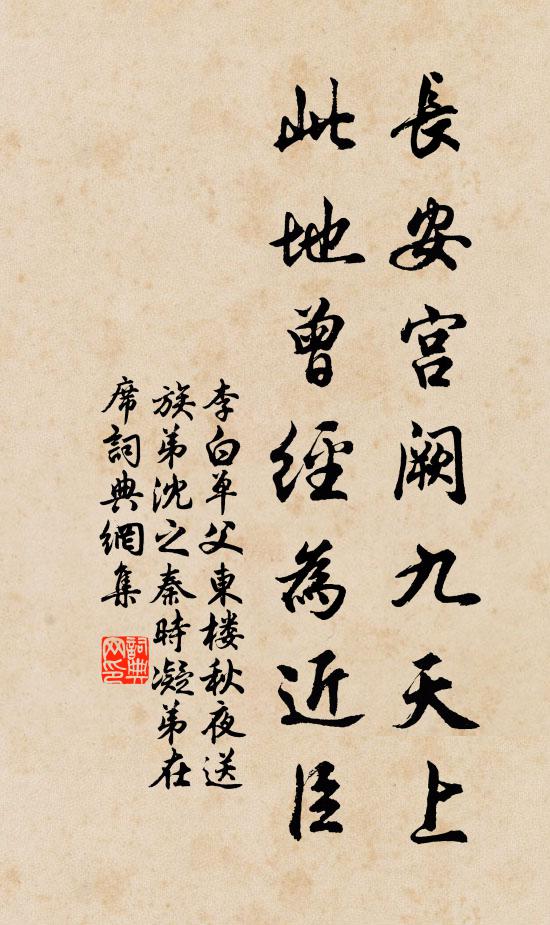 長安宮闕九天上
此地曾經為近臣
李白單父東樓秋夜送
族弟沈之秦時凝弟在
席詞典網集
詞典
网印